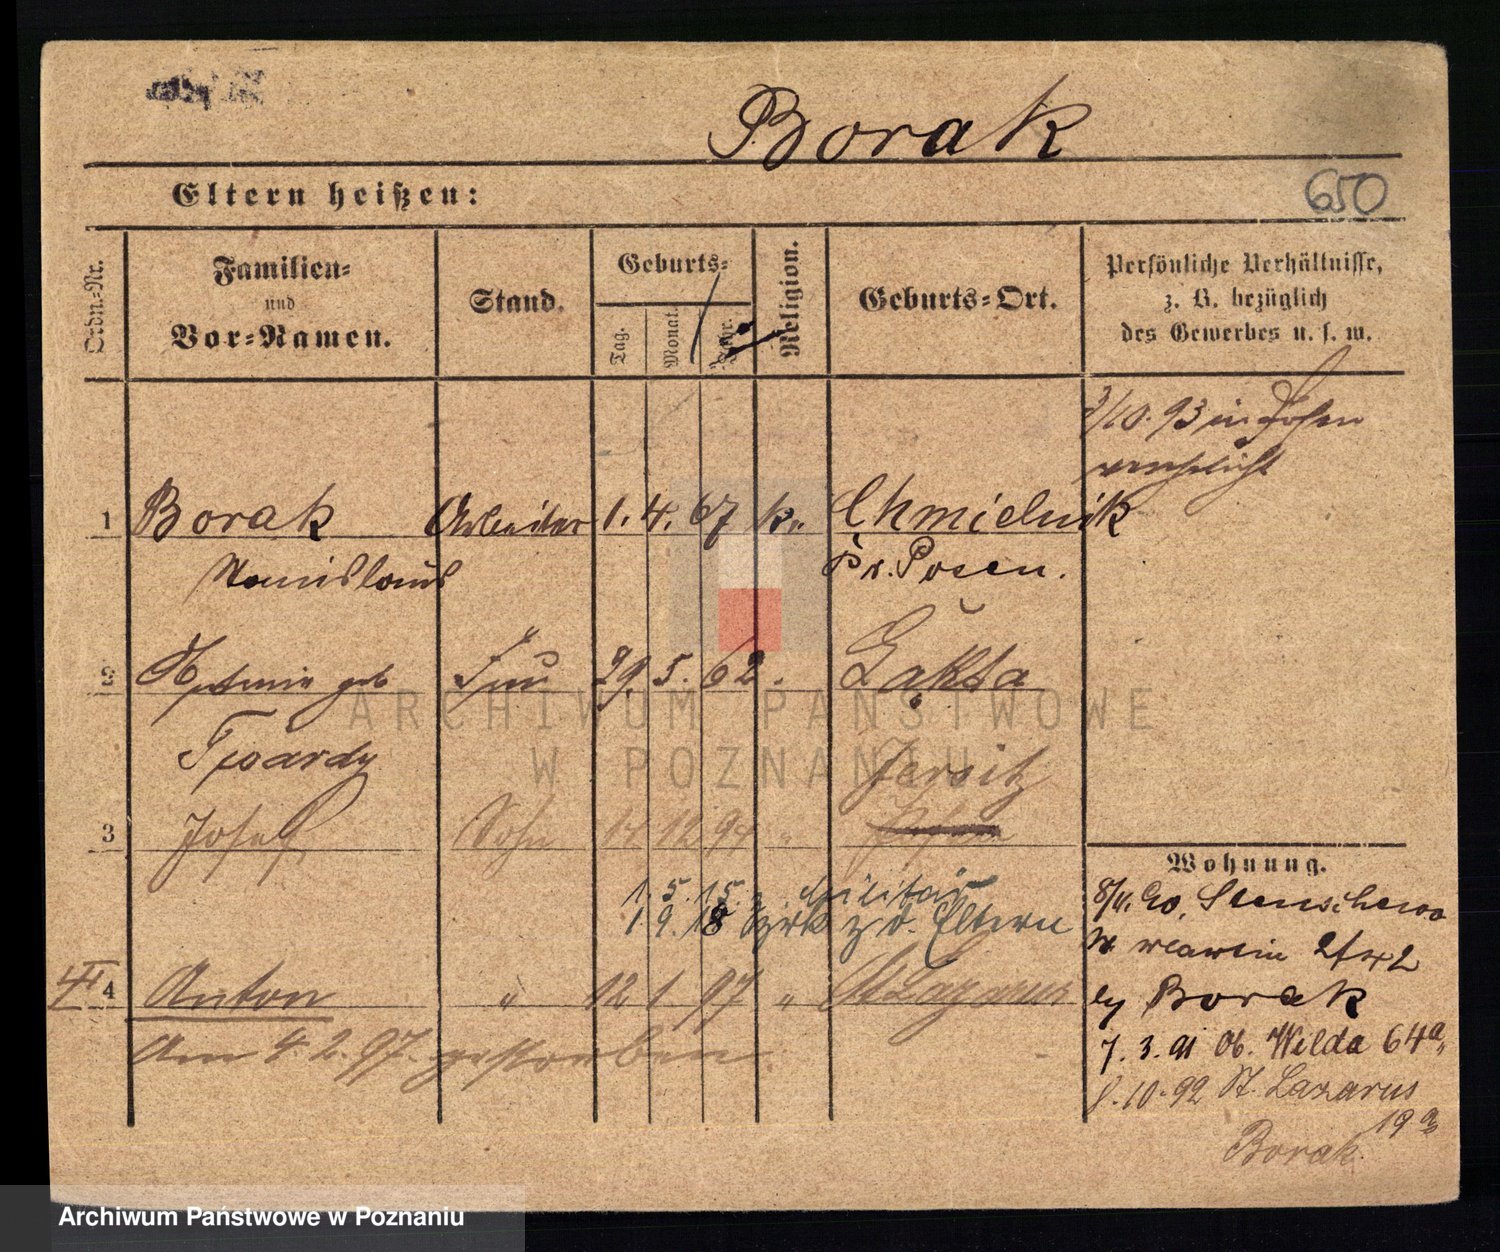 Borak
650
Eltern heißen:
Ordn.-Nr.
Familien-
und
Vor-Namen.
Stand.
Geburts-
Tag.
Monat.
Jahr.
Religion.
Geburts-Ort.
Persönliche Verhältnisse,
z. B. bezüglich
des Gewerbes u. s. w.
3/10. 93 in Posen
verehelicht
1 Borak Arbeiter 1. 4. 67 k. Chmielnik
Stanislaus Kr. Posen.
2 geb Frau 29. 5. 62.
Twardy
Jersitz
3 Josef Sohn 14 12 94 " Posen
1. 5. 15. z. Militär
1 9. 18 zrk z. d. Eltern
4 Anton " 12 1 97 " St Lazarus
Am 4. 2. 97. gestorben
Wohnung.
8/4. 90. Stenschewo
by Borak
7. 3. 91 Ob. Wilda 64a
8. 10. 92 St. Lazarus
19a
Borak
ARCHIWUM PAŃSTWOWE
W POZNANIU
Archiwum Państwowe w Poznaniu